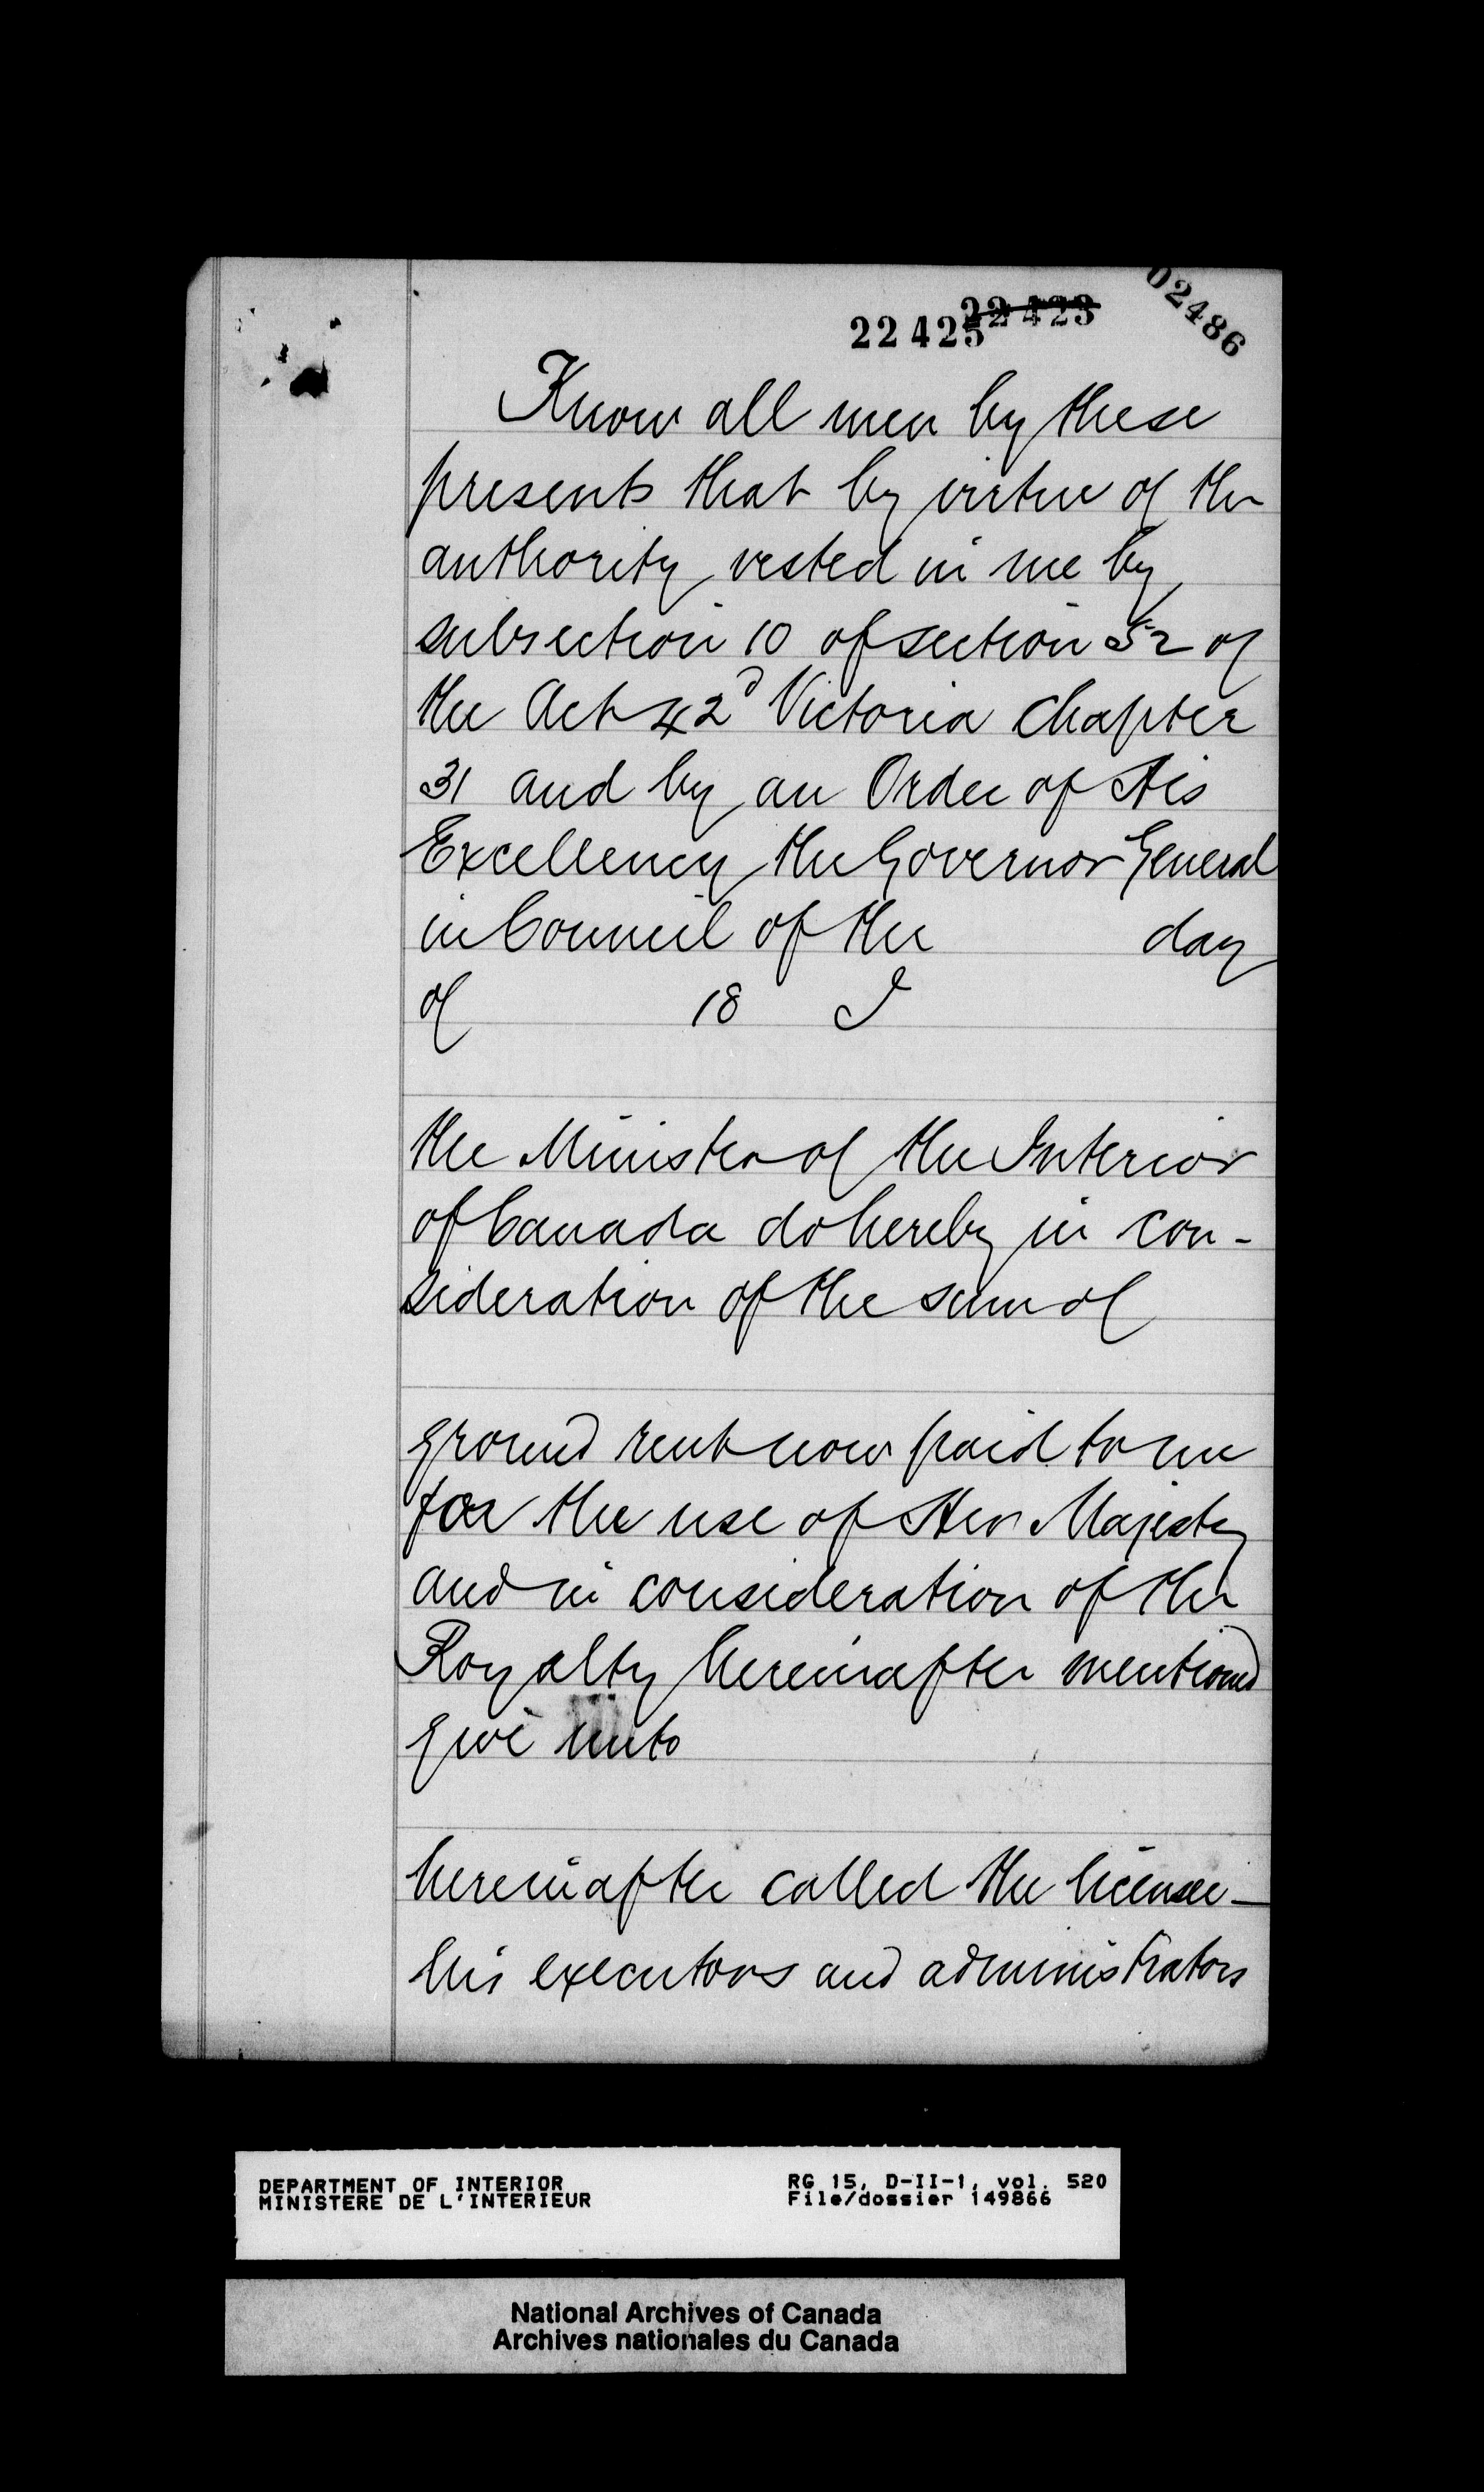 02486
22425 22423
Know all men by these
presents that by virtue of the
authority vested in me by
subsection 10 of section 52 of
the Act 42d Victoria Chapter
31 and by an Order of His
Excellency the Governor General
in Council of the day
of 18 I
the Minister of the Interior
of Canada do hereby in con-
sideration of the sum of
ground rent now paid to me
for the use of Her Majesty
and in consideration of the
Royalty hereinafter mentioned
give unto
hereinafter called the licensee
his executors and administrators
DEPARTMENT OF INTERIOR
MINISTERE DE L'INTERIEUR
RG 15, D-II-1, vol. 520
File/dossier 149866
National Archives of Canada
Archives nationales du Canada